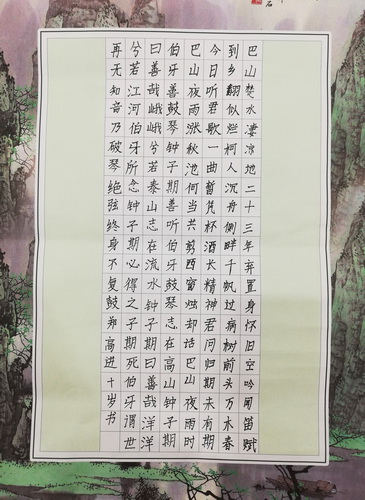 巴山楚水凄凉地二十三年弃置身怀旧空吟闻笛赋
到乡翻似烂柯人沉舟侧畔千帆过病树前头万木春
今日听君歌一曲暂凭杯酒长精神君问归期未有期
巴山夜雨涨秋池何当共剪西窗烛却话巴山夜雨时
伯牙善鼓琴钟子期善听伯牙鼓琴志在高山钟子期
曰善哉峨峨兮若泰山志在流水钟子期曰善哉洋洋
兮若江河伯牙所念钟子期必得之子期死伯牙谓世
再无知音乃破琴绝弦终身不复鼓郑高进十岁书